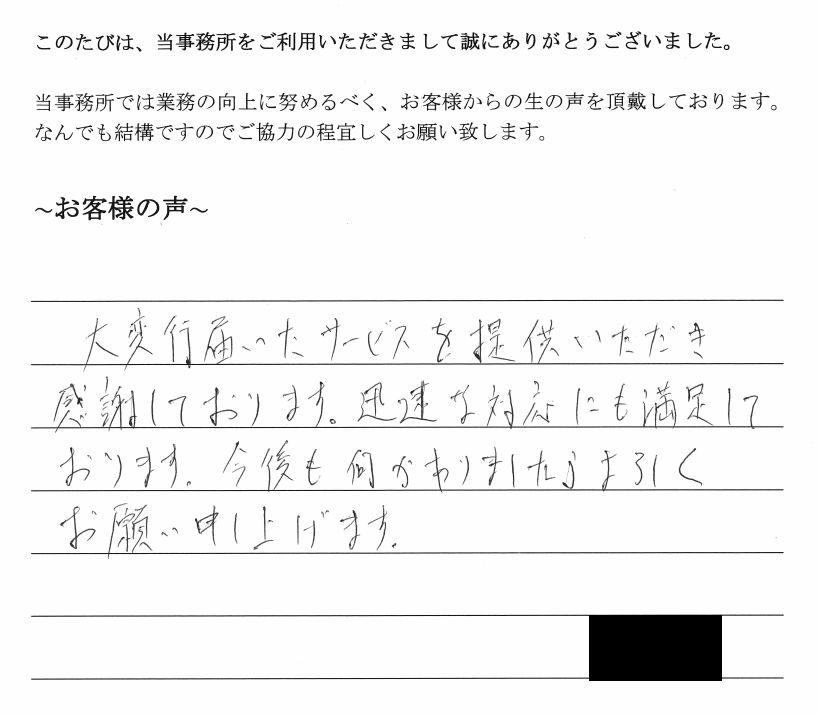 このたびは、当事務所をご利用いただきまして誠にありがとうございました。
当事務所では業務の向上に努めるべく、お客様からの生の声を頂戴しております。
なんでも結構ですのでご協力の程宜しくお願い致します。
～お客様の声～
大変行届いたサービスを提供いただき
感謝しております。迅速な対応にも満足して
おります。今後も何かありましたらよろしく
お願い申し上げます。